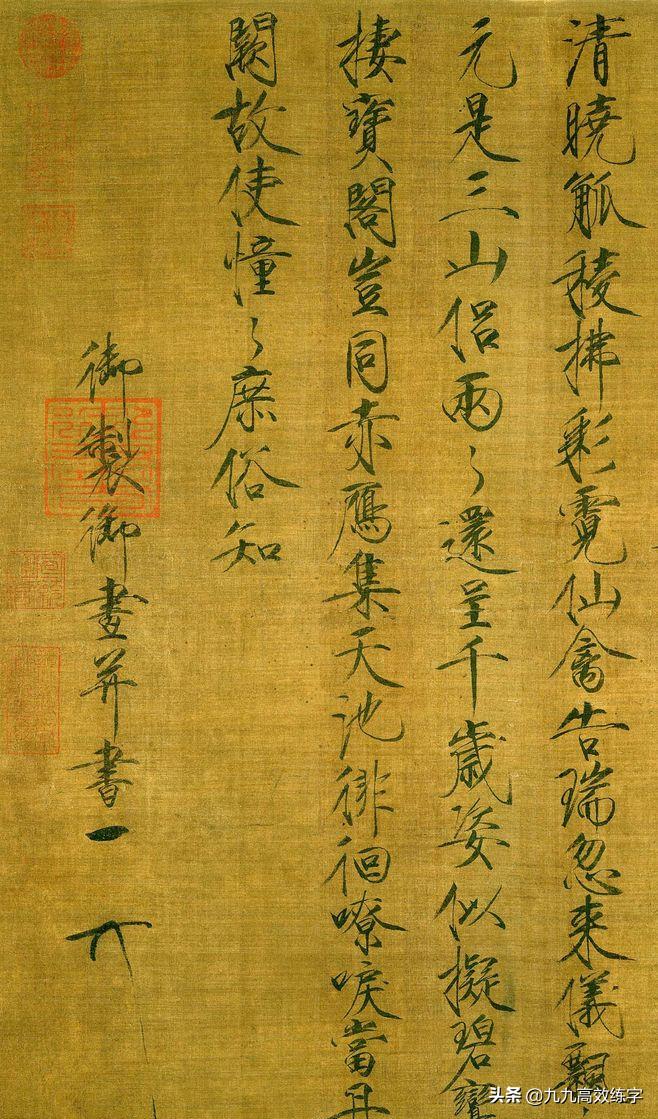 清曉觚稜拂彩霓仙禽告瑞忽来儀飄
元是三山侣兩〻還呈千歲姿似擬碧鸞
棲寶閣豈同赤鴈集天池徘徊嘹唳當丹
闕故使憧〻庶俗知
御製御畫并書
頭条 @九九高效练字